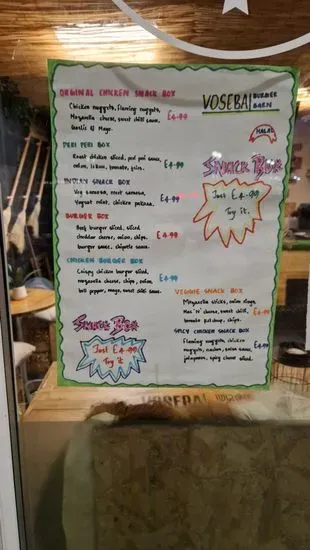 ORGINAL CHICKEN SNACK BOX
Chicken nuggets, flaming nuggets,
Mozarella cheese, sweet chilli sauce,
Garlic & Mayo.
£4.99
VOSEBA BURGER
BARN
HALAL
PERI PERI BOX
Roast chicken sliced, peri peri sauce,
onion, tomato,
£4.99
SNACK BOX
Just £4.99
Try it.
INDIAN SNACK BOX
Veg samosa, meat samosa,
Yogurt mint, chicken pakora.
£4.99
BURGER BOX
Beef burger sliced, sliced
cheddar cheese, onion, chips,
burger sauce, chipotle sauce.
£4.99
CHICKEN BURGER BOX
Crispy chicken burger sliced,
mozarella cheese, chips, onion,
bell pepper, mayo, sweet chilli sauce.
£4.99
VEGGIE SNACK BOX
Mozarella sticks, onion rings,
Mac 'n' cheese, sweet chilli,
tomato ketchup, chips.
£4.99
SNACK BOX
Just £4.99
Try it
SPICY CHICKEN SNACK BOX
Flaming nuggets, chicken
nuggets, nachos, salsa sauce,
jalapenos, spicy cheese sliced.
£4.99
VOSEBA